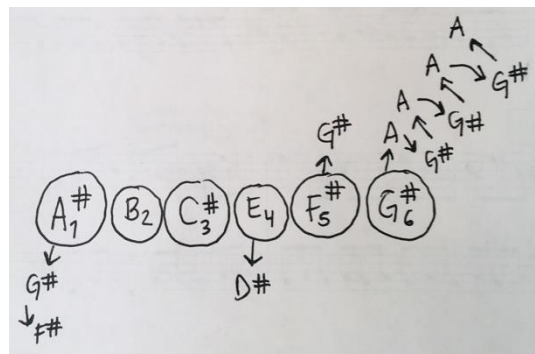 A
A G#
A G#
G# A G#
A1# B2 C3# E4 F5# G6#
G# D#
F#